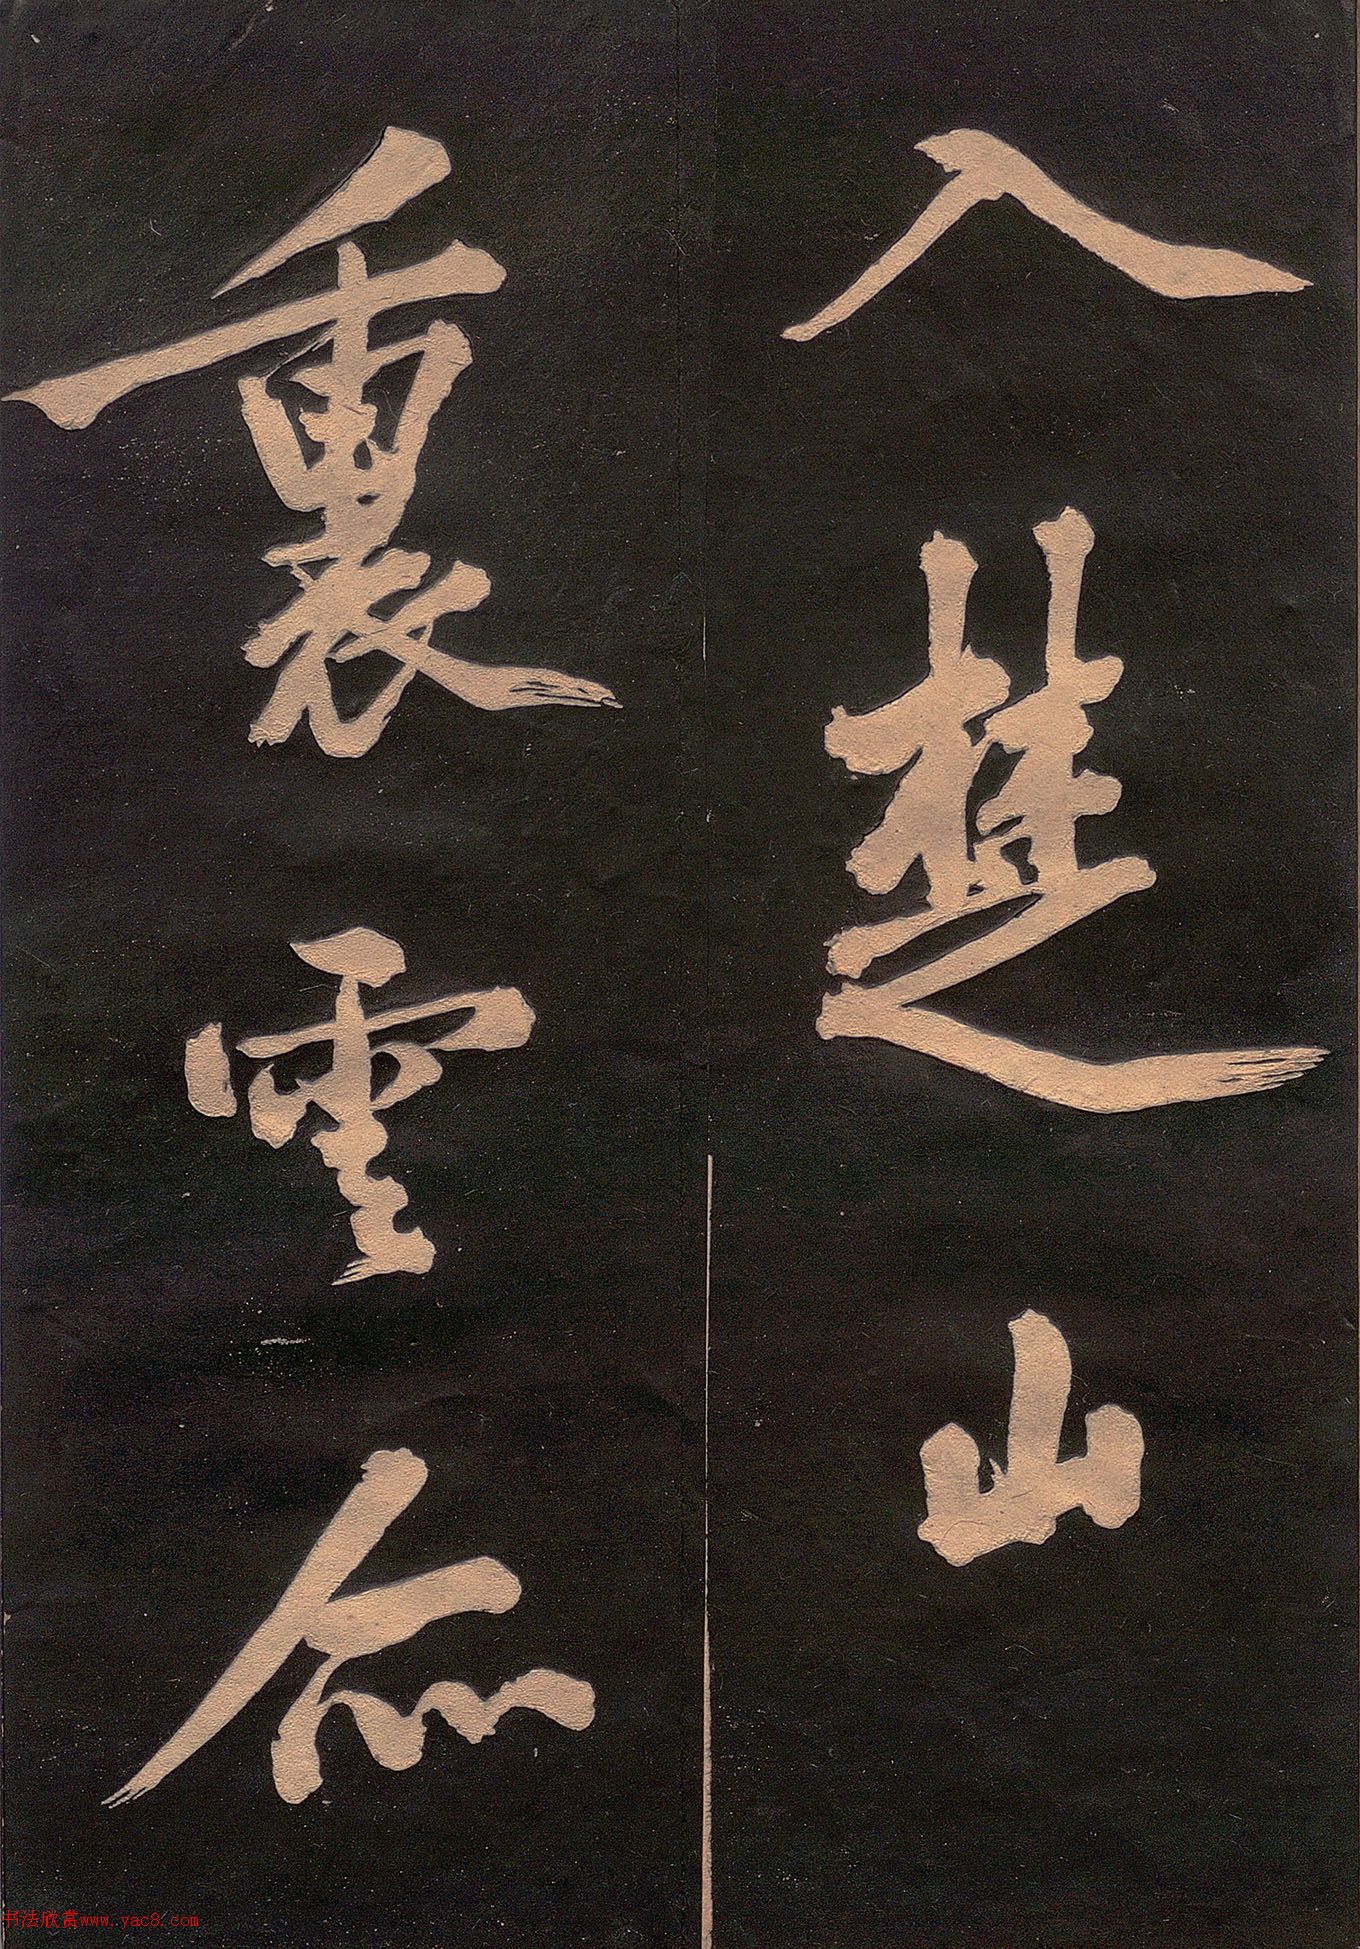 入楚山
裏雲亦
书法欣赏www.yac8.com